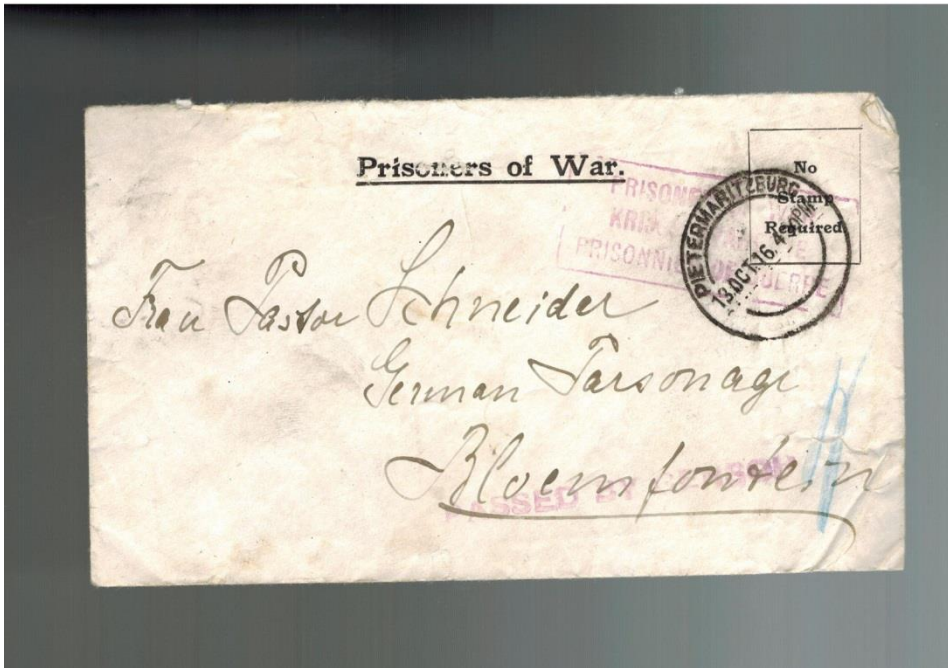 Prisoners of War.
No
Stamp
Required.
PRISONE
KRI
PRISONNI DE GUERRE
PIETERMARITZBURG
13 OCT 16. 4
Frau Pastor Schneider
German Parsonage
Bloemfontein
PASSED BY